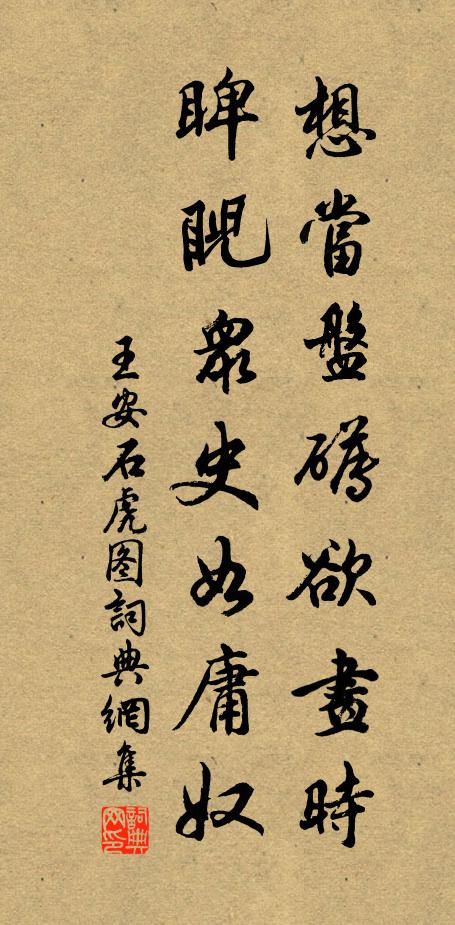 想當盤礴欲畫時
睥睨眾史如庸奴
王安石虎图詞典網集
詞典网印